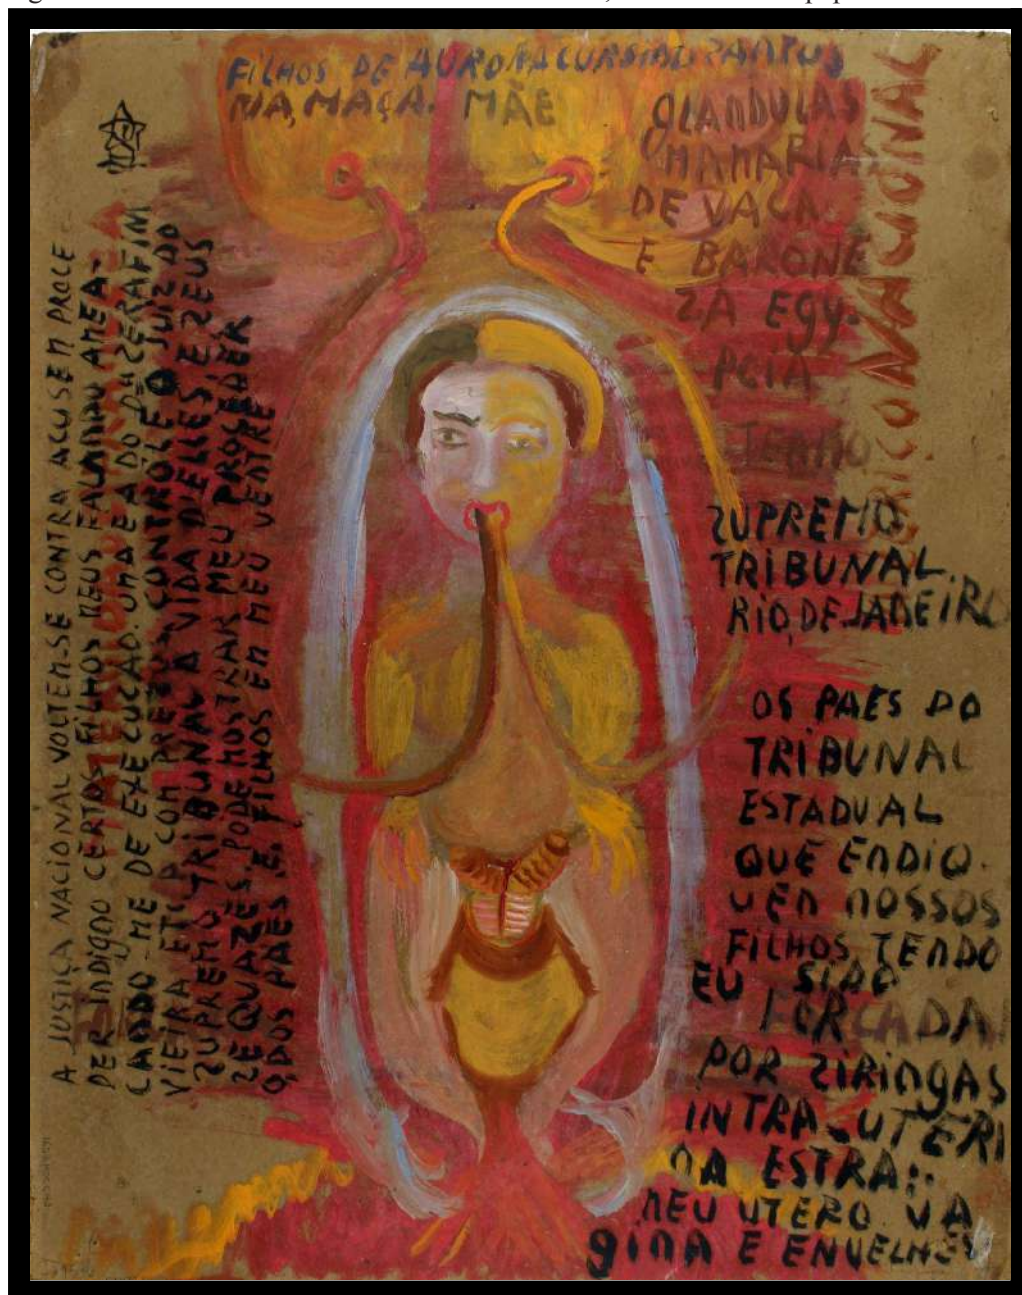 FILHOS DE AURORA CURSINO
NIA, MAÇA. MÃE
GLANDULAS
MAMARIAS
DE VACA
E BARONE
ZA EGY.
PCIA
TENHO
NACIONAL
ZUPREMO
TRIBUNAL.
RIO, DE JANEIRO
OS PAES DO
TRIBUNAL
ESTADUAL
QUE ENDIQ.
UEN NOSSOS
FILHOS, TENDO
EU SIDO
FORCADA
POR ZIRINGAS
INTRA-UTERI
NA ESTRA:.
MEU UTERO VA
gina E ENVELHE
A JUSTIÇA NACIONAL VOLTEM-SE CONTRA ACUSE N PROCE-
DER INDIGNO CERTOS FILHOS MEUS FALANDO AMEA-
CANDO-ME DE EXECUCAO. UMA E A DO D ZERAFIM
VIEIRA ETC. P COM CONTRÔLE O JUIZ DO
ZUPREMO TRIBUNAL A VIDA D'ELLES E ZEUS
ZEQUAZES. PODE MOSTRAR MEU
O,DOS PAES E, FILHOS EM MEU VENTRE